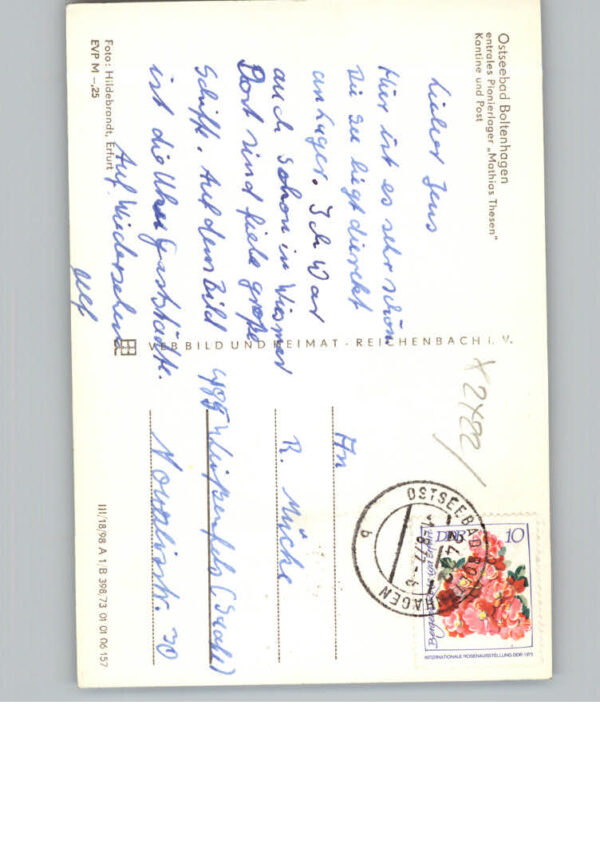 Ostseebad Boltenhagen
entrales Pionierlager „Mathias Thesen"
Kantine und Post
Lieber Jens
Hier ist es sehr schön
Die See liegt direckt
am Lager. Ich war
auch schon in Wismar
Dort sind fiele große
Schiffe. Auf dem Bild
ist die Gaststädte.
Auf Wiedersehen
Ulf
Foto: Hildebrandt, Erfurt
EVP M –,25
VEB BILD UND HEIMAT - REICHENBACH i. V.
An
R. Mücke
485 Weißenfels (Saale)
Novalisstr. 30
III/18/98 A 1 B 398/73 01 01 06 157
X 2422/
OSTSEEBAD BOLTENHAGEN
b
DDR 10
INTERNATIONALE ROSENAUSSTELLUNG DDR 1972